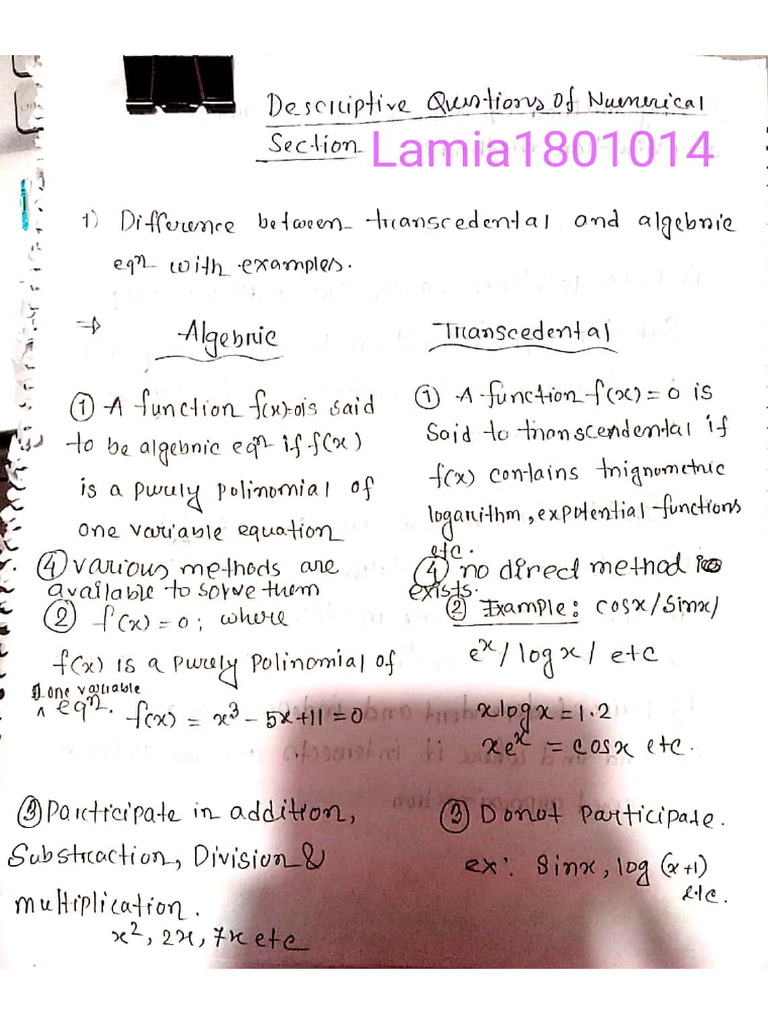 Descriptive Questions Of Numerical
Section Lamia1801014
1) Difference between transcedental and algebric
eqn with examples.
⇒ Algebric
① A function f(x)=0 is said
to be algebric eqn if f(x)
is a purely polinomial of
one variable equation
④ various methods are
available to solve them
② f(x) = 0; where
f(x) is a purely polinomial of
one variable
^ eqn. f(x) = x³ - 5x+11 = 0
③ Participate in addition,
Substraction, Division &
multiplication.
x², 2x, 7x etc
Transcedental
① A function f(x) = 0 is
Said to transcendental if
f(x) contains trignometric
logarithm, expotential functions
etc.
④ no direct method is
exists.
② Example: cosx/sinx/
eˣ/logx/etc
xlogx = 1.2
xeˣ = cosx etc.
③ Donot participate.
ex: sinx, log (x+1)
etc.